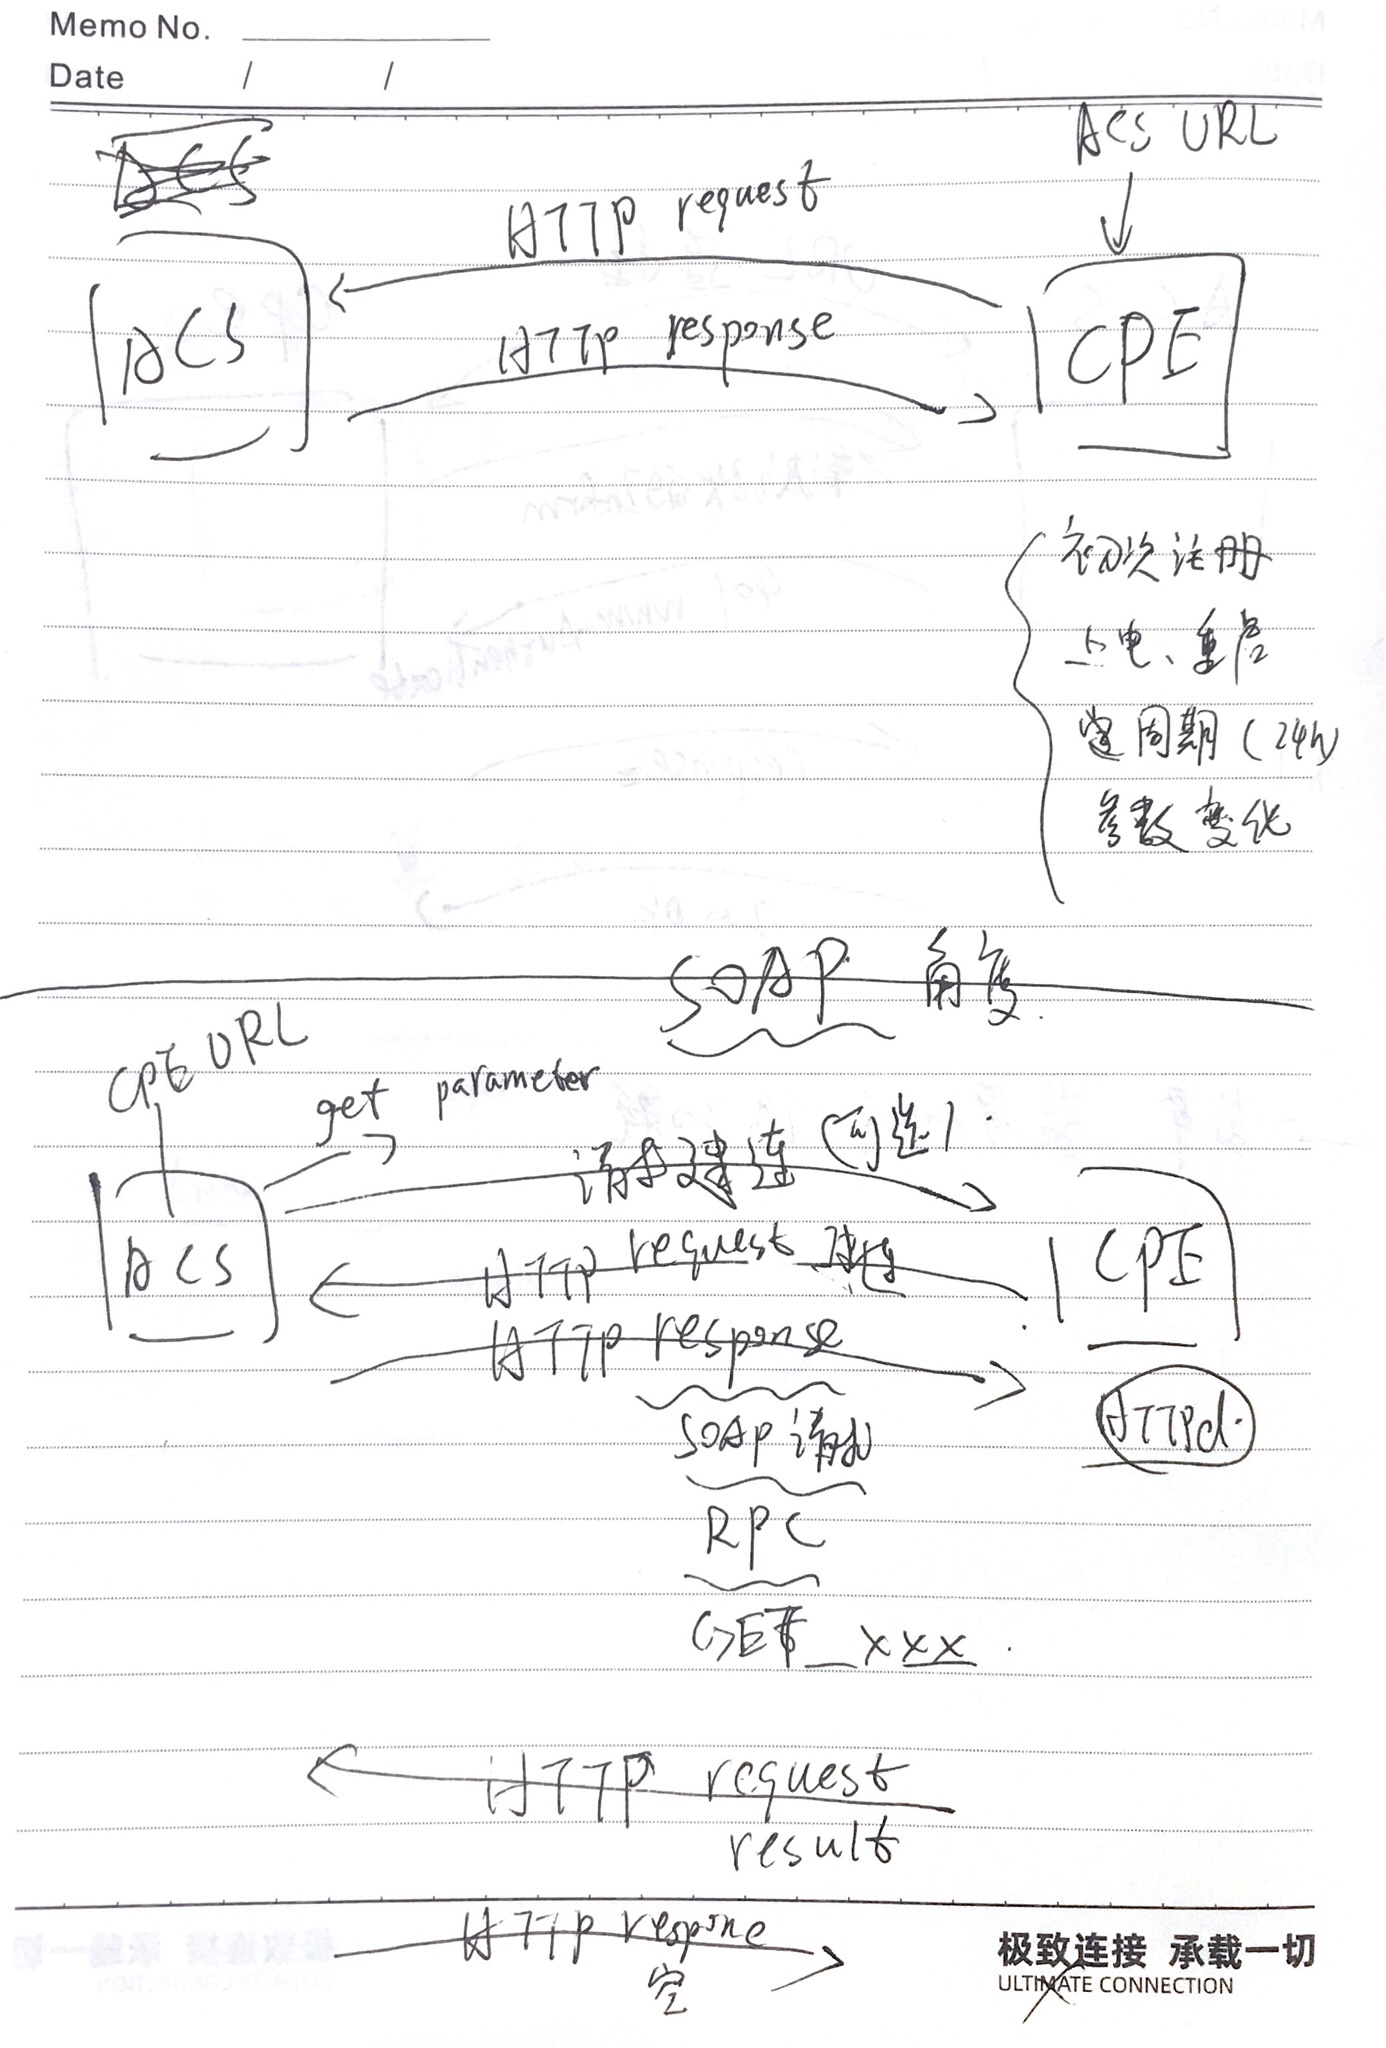 Memo No.
Date / /
ACS
ACS URL
HTTP request
HTTP response
ACS
CPE
初次注册
上电、重启
定周期(24h)
参数变化
SOAP 角度.
CPE URL
get parameter
请求建连(可选).
HTTP request 建链
HTTP response
ACS
CPE
HTTPd.
SOAP 请求
RPC
GET_xxx.
HTTP request
result
HTTP respone
空
极致连接 承载一切
ULTIMATE CONNECTION